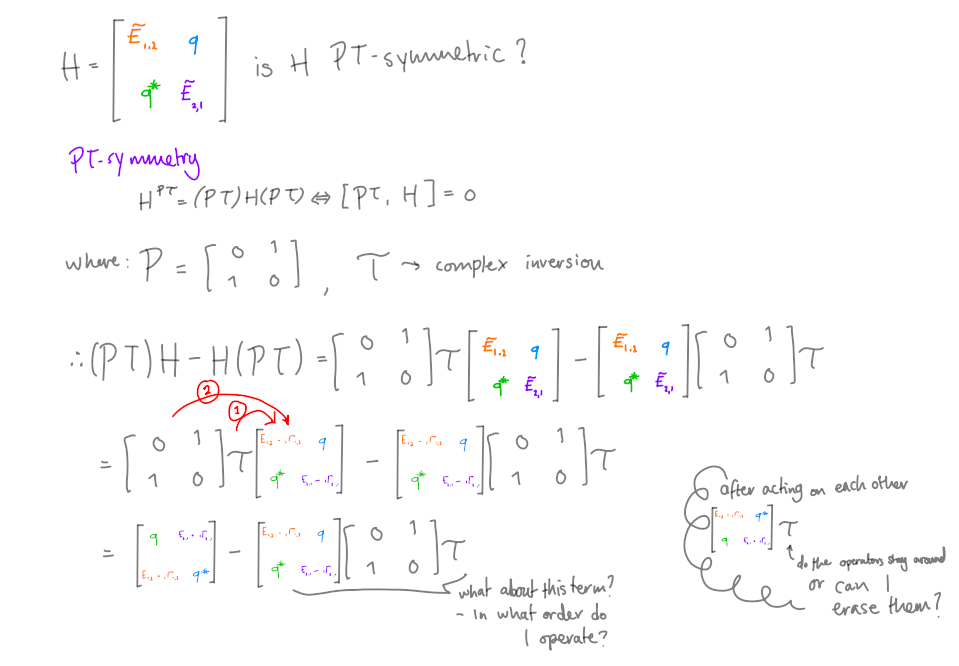 H = [ Ẽ₁,₂ q is H PT-symmetric?
q* Ẽ₂,₁ ]
PT-symmetry
H^PT = (PT)H(PT) ⇔ [PT, H] = 0
where: P = [ 0 1
1 0 ], T → complex inversion
∴ (PT)H - H(PT) = [ 0 1 ] T [ Ẽ₁,₂ q ] - [ Ẽ₁,₂ q ] [ 0 1 ] T
[ 1 0 ] [ q* Ẽ₂,₁ ] [ q* Ẽ₂,₁ ] [ 1 0 ]
② ①
= [ 0 1 ] T [ E₁,₂ - iΓ₁,₂ q ] - [ E₁,₂ - iΓ₁,₂ q ] [ 0 1 ] T
[ 1 0 ] [ q* E₂,₁ - iΓ₂,₁ ] [ q* E₂,₁ - iΓ₂,₁ ] [ 1 0 ]
= [ q E₂,₁ + iΓ₂,₁ ] - [ E₁,₂ - iΓ₁,₂ q ] [ 0 1 ] T
[ E₁,₂ + iΓ₁,₂ q* ] [ q* E₂,₁ - iΓ₂,₁ ] [ 1 0 ]
what about this term?
- in what order do
I operate?
after acting on each other
[ E₁,₂ + iΓ₁,₂ q* ] T
[ q E₂,₁ + iΓ₂,₁ ]
do the operators stay around
or can I
erase them?